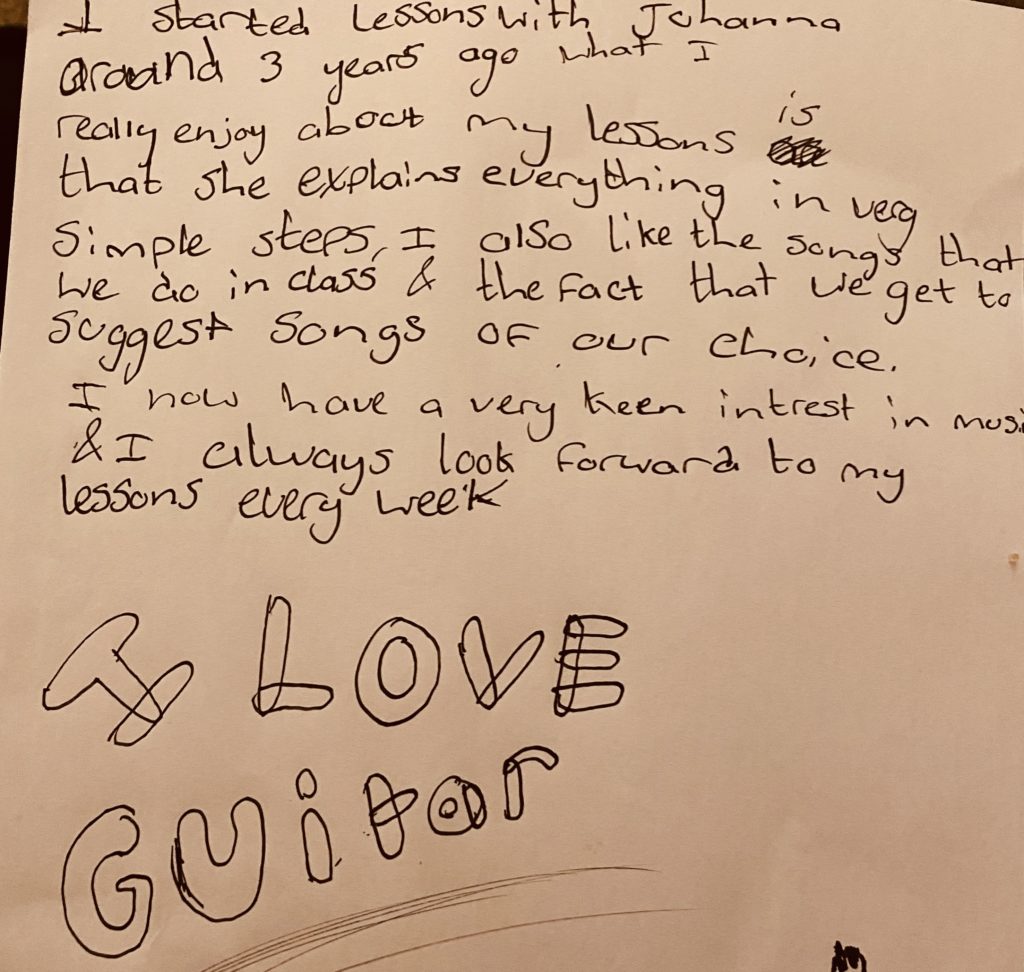 I started Lessons with Johanna
around 3 years ago what I
really enjoy about my lessons is
that she explains everything in very
Simple steps, I also like the songs that
we do in class & the fact that we get to
suggest songs of our choice.
I now have a very keen intrest in musi
& I always look forward to my
lessons every week
I LOVE
GUitar